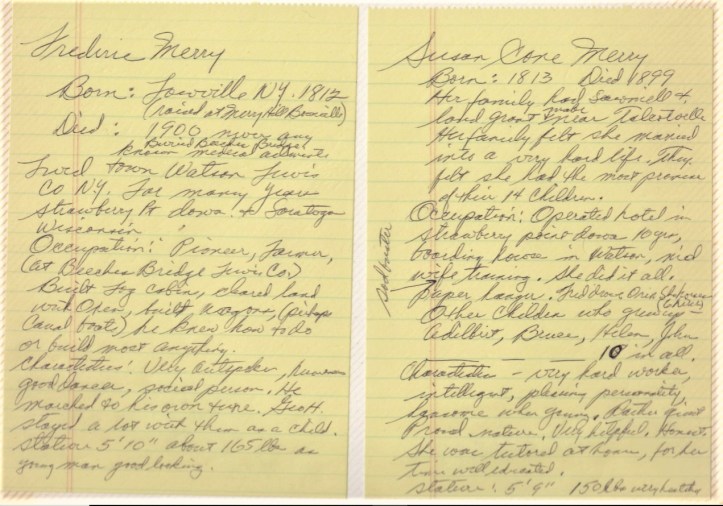 Frederic Merry
Born: Lowville NY. 1812
(raised at Merry Hill
Died: 1900 never any
Buried Beeches Bridge
known medical
Lived town Watson Lewis
Co NY. For many years
Strawberry Pt Iowa. & Saratoga
Wisconsin
Occupation: Pioneer, Farmer,
(at Beeches Bridge Lewis Co)
Built log cabin, cleared land
with Oxen, built wagons, (perhaps
Canal boats) he knew how to do
or build most anything.
Characteristics: Very outspoken,
good dancer, social person. He
marched to his own tune. Geo H.
stayed a lot with them as a child.
Stature 5'10" about 165 lbs as
young man good looking.
Susan Cone Merry
Born: 1813 Died 1899
Her family had Sawmill &
land grant near Talcotville
Her family felt she married
into a very hard life. They
felt she had the most promise
of their 14 children.
Occupation: Operated hotel in
Strawberry point Iowa 10 yrs,
boarding house in Watson, mid
wife training. She did it all.
Paper hanger.
Other Children who grew up
Adelbert, Bruce, Helen, John
10 in all.
Characteristics - very hard worker,
intelligent, pleasing personality,
handsome when young. Rather quiet
Proud nature. Very helpful. Honest.
She was tutored at home, for her
time well educated.
Stature: 5'9" 150 lbs very healthy